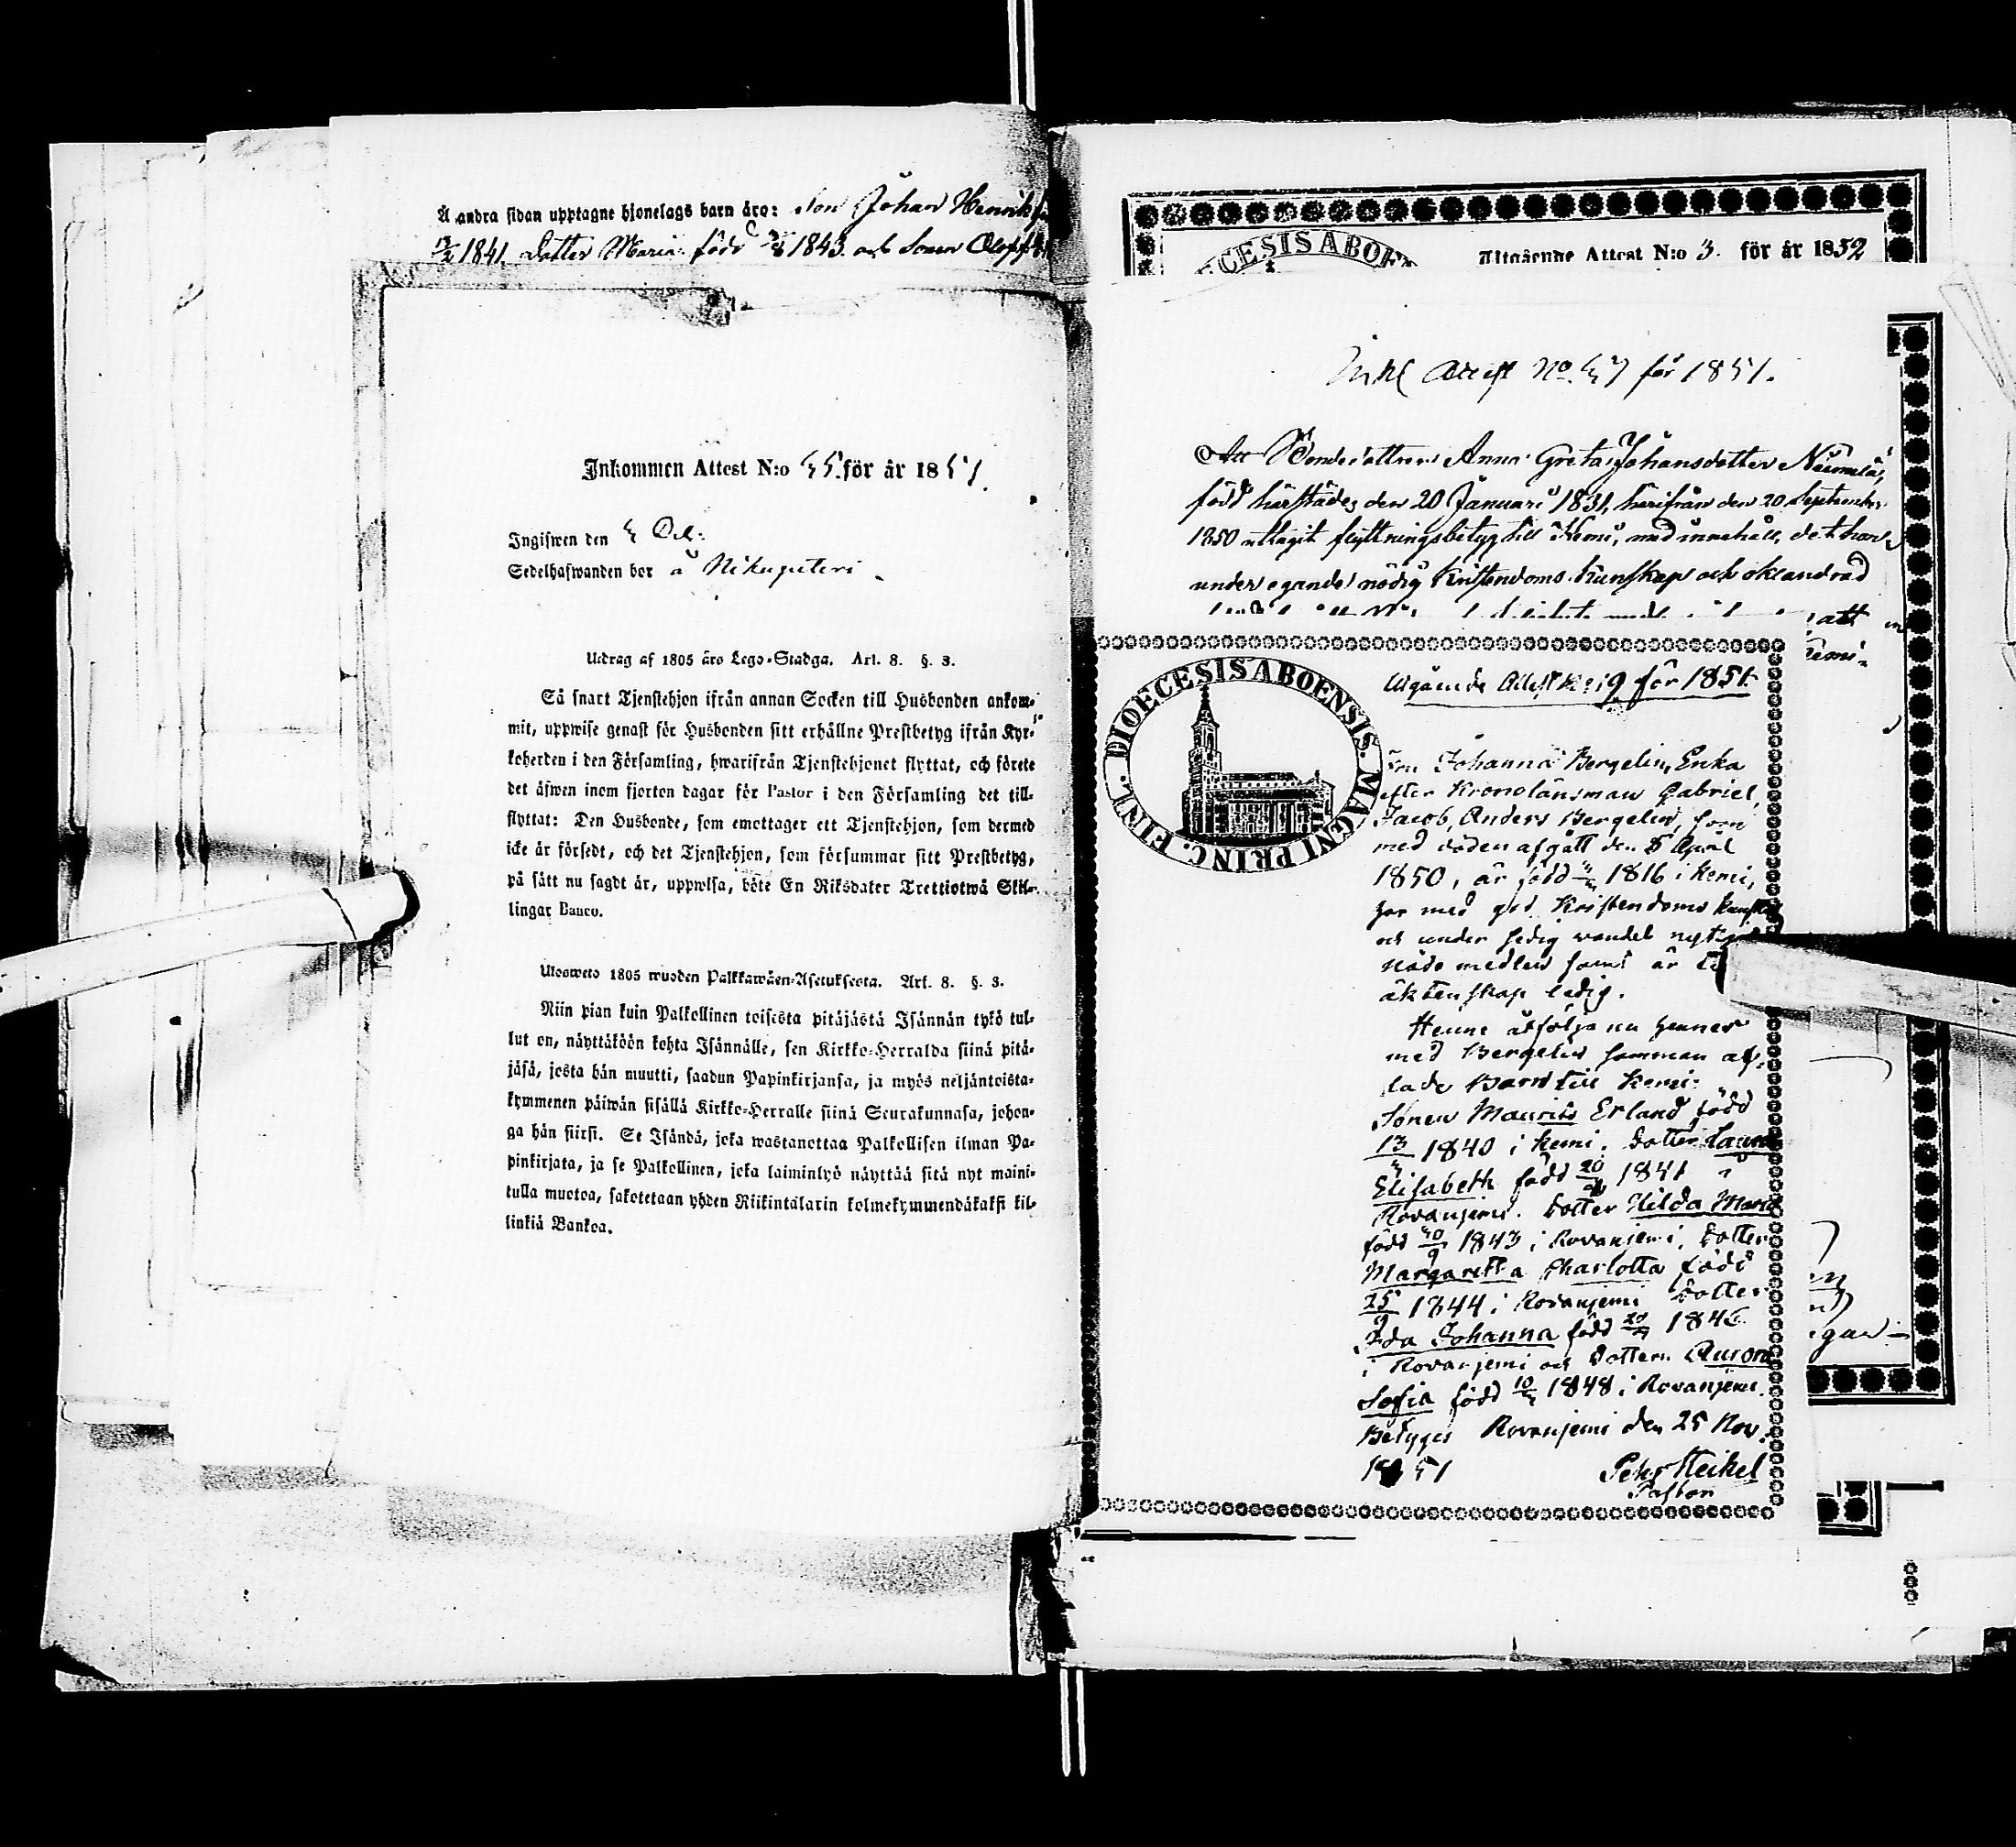 Å andra sidan upptagne hjonelags barn äro: Son Johan Henrik
1841. Dotter Maria född 1843. och Sonen Olof
Inkommen Attest N:o 55. för år 1851.
Ingifwen den 5 Dec:
Sedelhafwanden bor å
Utdrag af 1805 års Lego-Stadga. Art. 8. §. 3.
Så snart Tjenstehjon ifrån annan Socken till Husbonden ankom-
mit, uppwise genast för Husbonden sitt erhållne Prestbetyg ifrån Kyr-
koherden i den Församling, hwarifrån Tjenstehjonet flyttat, och förete
det äfwen inom fjorton dagar för Pastor i den Församling det till-
flyttat: Den Husbonde, som emottager ett Tjenstehjon, som dermed
icke är försedt, och det Tjenstehjon, som försummar sitt Prestbetyg,
på sätt nu sagdt är, uppwisa, böte En Riksdaler Trettiotwå Skil-
lingar Banco.
Ulosweto 1805 wuoden Palkkawäen-Asetuksesta. Art. 8. §. 3.
Niin pian kuin Palkollinen toisesta pitäjästä Isännän tykö tul-
lut on, näyttäköön kohta Isännälle, sen Kirkko-Herralda siinä pitä-
jäsä, josta hän muutti, saadun Papinkirjansa, ja myös neljäntoista-
kymmenen päiwän sisällä Kirkko-Herralle siinä Seurakunnasa, johon-
ga hän siirsi. Se Isändä, joka wastanottaa Palkollisen ilman Pa-
pinkirjata, ja se Palkollinen, joka laiminlyö näyttää sitä nyt maini-
tulla muotoa, sakotetaan yhden Riikintalarin kolmekymmendäkaksi kil-
linkiä Bankoa.
Utgående Attest N:o 3. för år 1852
Attest No. 57 för 1851.
Att Bondedottren Anna Greta Johansdotter
född härstädes den 20 Januari 1831, härifrån den 20 September
1850 uttagit flyttningsbetyg till Kemi, med innehåll, det hon
under egande nödig Kristendoms kunskap och oklandrad
att
Kemi
DIOECESIS ABOENSIS. MAGNI PRINC. FINL.
Utgående Attest N:o 19 för 1851.
Johanna Bergelin, Enka
efter Kronolänsman Gabriel,
Jacob, Anders Bergelin, som
med döden afgått den 5 April
1850, är född 1816 i Kemi,
har med god Kristendoms
och under sedig vandel
nådemedlen samt är till
äktenskap ledig.
Henne åtfölja nu hennes
med Bergelin samman af-
lade Barn till Kemi:
Sonen Maurits Erland född
13 1840 i Kemi. Dotter Laura
Elisabeth född 20 1841
Rovanjemi. Dotter Hilda Maria
född 1843 i Rovanjemi, Dotter
Margaretta Charlotta född
25/9 1844 i Rovanjemi Dotter
Ida Johanna född 1846
i Rovanjemi och Dottern Aurora
Sofia född 1848 i Rovanjemi.
Betyges Rovanjemi den 25 Nov.
1851 Pehr Heikel
Pastor